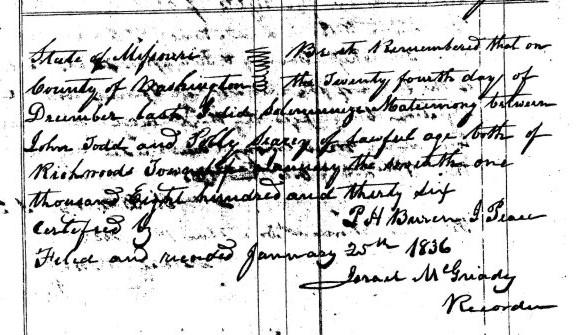 State of Missouri Be it Remembered that on
County of Washington the Twenty fourth day of
December last I did Solemnize Matrimony between
John Todd and Polly of Lawful age both of
Richwoods Township January the one
thousand Eight hundred and thirty Six
Certified by P H Buren J. Peace
Filed and recorded January 25th 1836
Israel McGready
Recorder